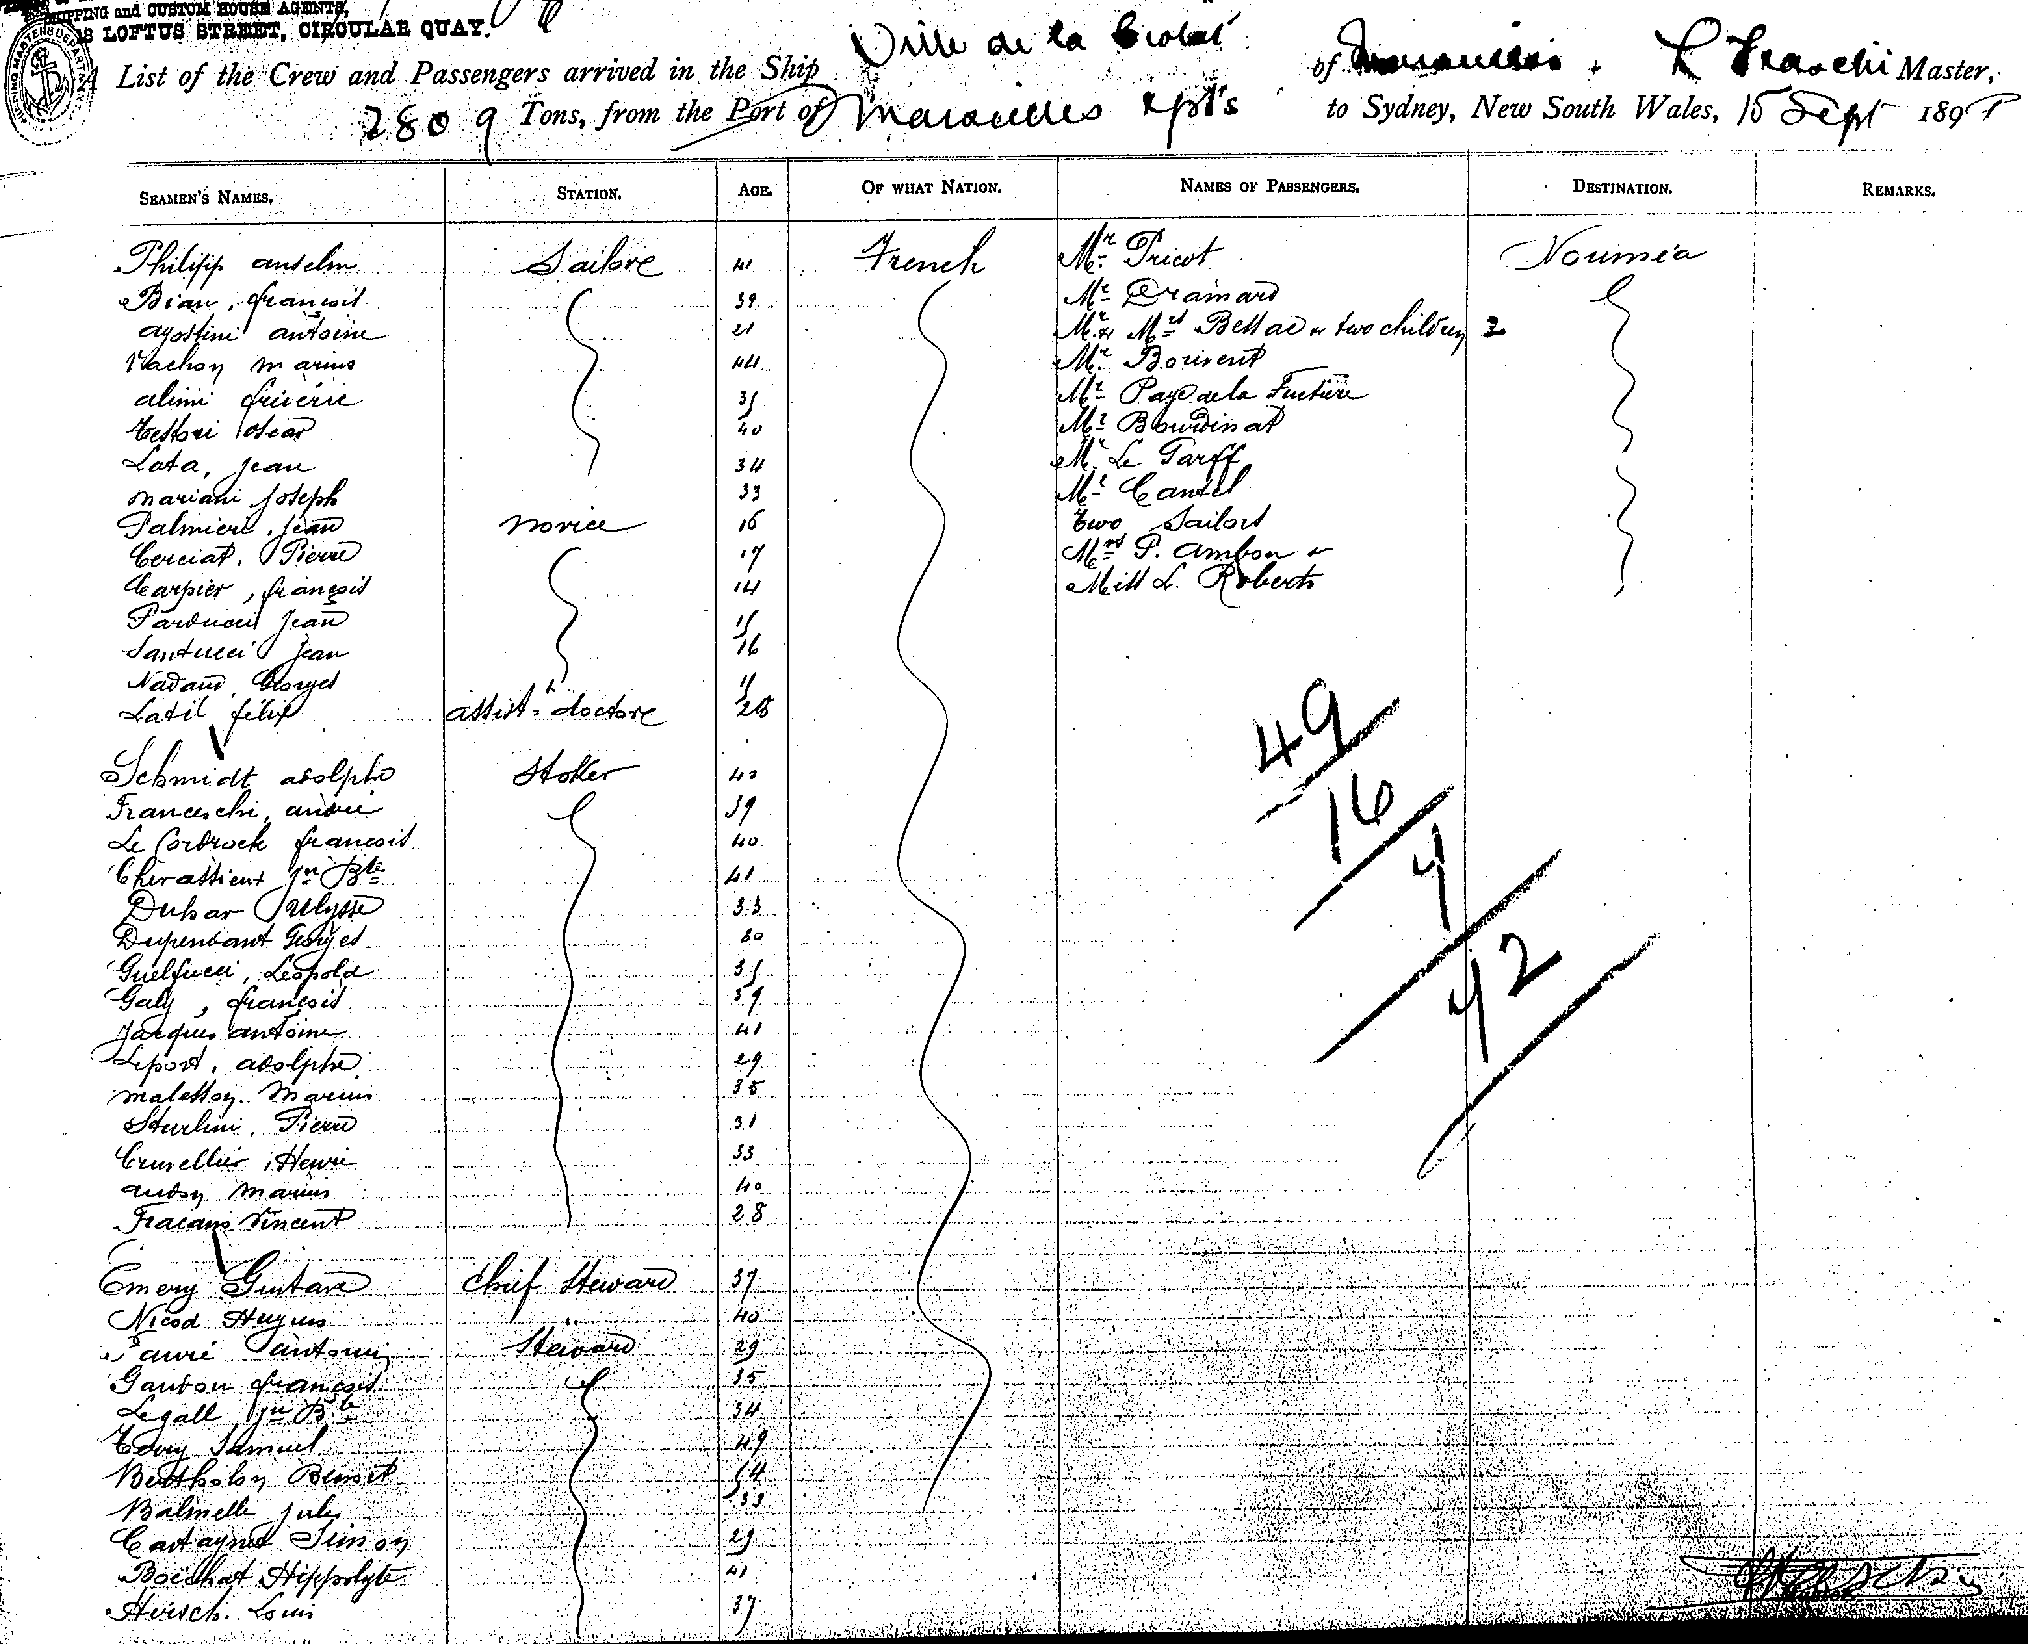 SHIPPING and CUSTOM HOUSE AGENTS,
LOFTUS STREET, CIRCULAR QUAY.
A List of the Crew and Passengers arrived in the Ship Ville de la Ciotat of Marseilles. L Fraschi Master,
2809 Tons, from the Port of Marseilles & pts to Sydney, New South Wales, 15 Sept 189
SEAMEN'S NAMES. STATION. AGE. OF WHAT NATION. NAMES OF PASSENGERS. DESTINATION. REMARKS.
Philipp anselm Sailore 41 French Mr Pricot Nouméa
Bian, françois 39 Mr Dramard
agostini antoine 21 Mr & Mrs Bessac & two children 2
Vachon marius 44 Mr Bouvent
alimi 35 Mr Page de la
Testori oscar 40 Mr Bourdinat
Lota, Jean 34 Mr Le Garff
mariani Joseph 33 Mr Cantel
Palmieri, Jean novice 16 two Sailors
Cerciat, Pierre 17 Mrs P. Ambon &
Carpier, françois 14 Miss L. Roberts
Parducci Jean 15
Santucci Jean 16
Nadaud, Georges 11
Latil félix assist- doctore 28
Schmidt adolphe Stoker 40
Franceschi, andré 39
Le Corbrock françois 40
Cherassient Jn Bte 41
Duhar Ulysse 33
Dupenbant Georges 30
Guelfucci, Léopold 35
Galy, françois 39
Jacques antoine 41
Leport, adolphe 29
malesson Marius 35
Sturlini, Pierre 31
Cruvellier, Henri 33
andon Marius 40
Fracani Vincent 28
Emery Gustave chief Steward 37
Nicod Hugues 40
Fauré antonin Steward 29
Gaubon françois 35
Legall Jn Bte 34
Covry Samuel 49
Bertholon Benoit 54
Balmelle Jules 33
Castaynet Simon 29
Boichat Hippolyte 41
Hersch. Louis 37
49
16
4
42